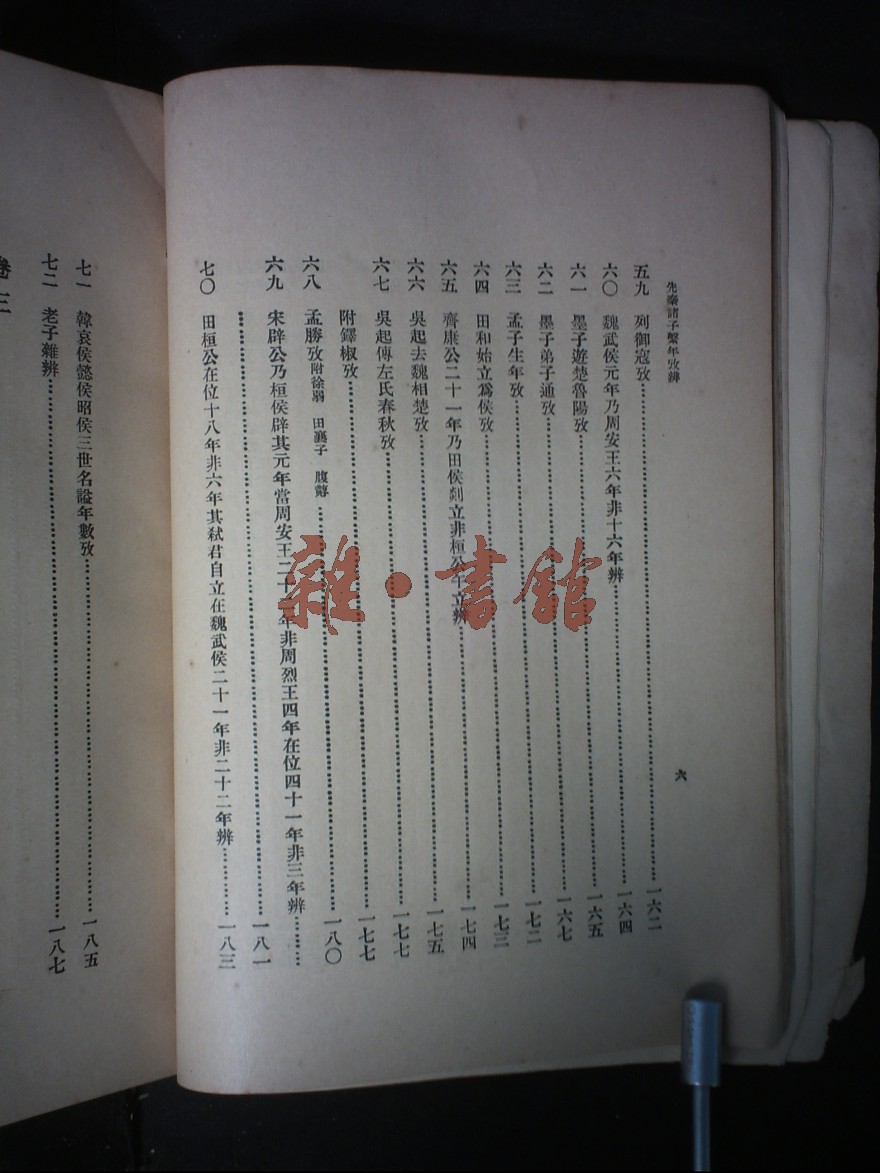 先秦諸子繫年攷辨
六
五九 列御寇攷……一六二
六〇 魏武侯元年乃周安王六年非十六年辨……一六四
六一 墨子遊楚魯陽攷……一六五
六二 墨子弟子通攷……一六七
六三 孟子生年攷……一七二
六四 田和始立爲侯攷……一七三
六五 齊康公二十一年乃田侯剡立非桓公午立辨……一七四
六六 吳起去魏相楚攷……一七五
六七 吳起傳左氏春秋攷……一七七
附鐸椒攷……一七七
六八 孟勝攷附徐弱 田襄子 腹䵍……一八〇
六九 宋辟公乃桓侯辟其元年當周安王二十二年非周烈王四年在位四十一年非三年辨……
……一八一
七〇 田桓公在位十八年非六年其弒君自立在魏武侯二十一年非二十二年辨……一八三
七一 韓哀侯懿侯昭侯三世名謚年數攷……一八五
七二 老子雜辨……一八七
卷三
雜·書館